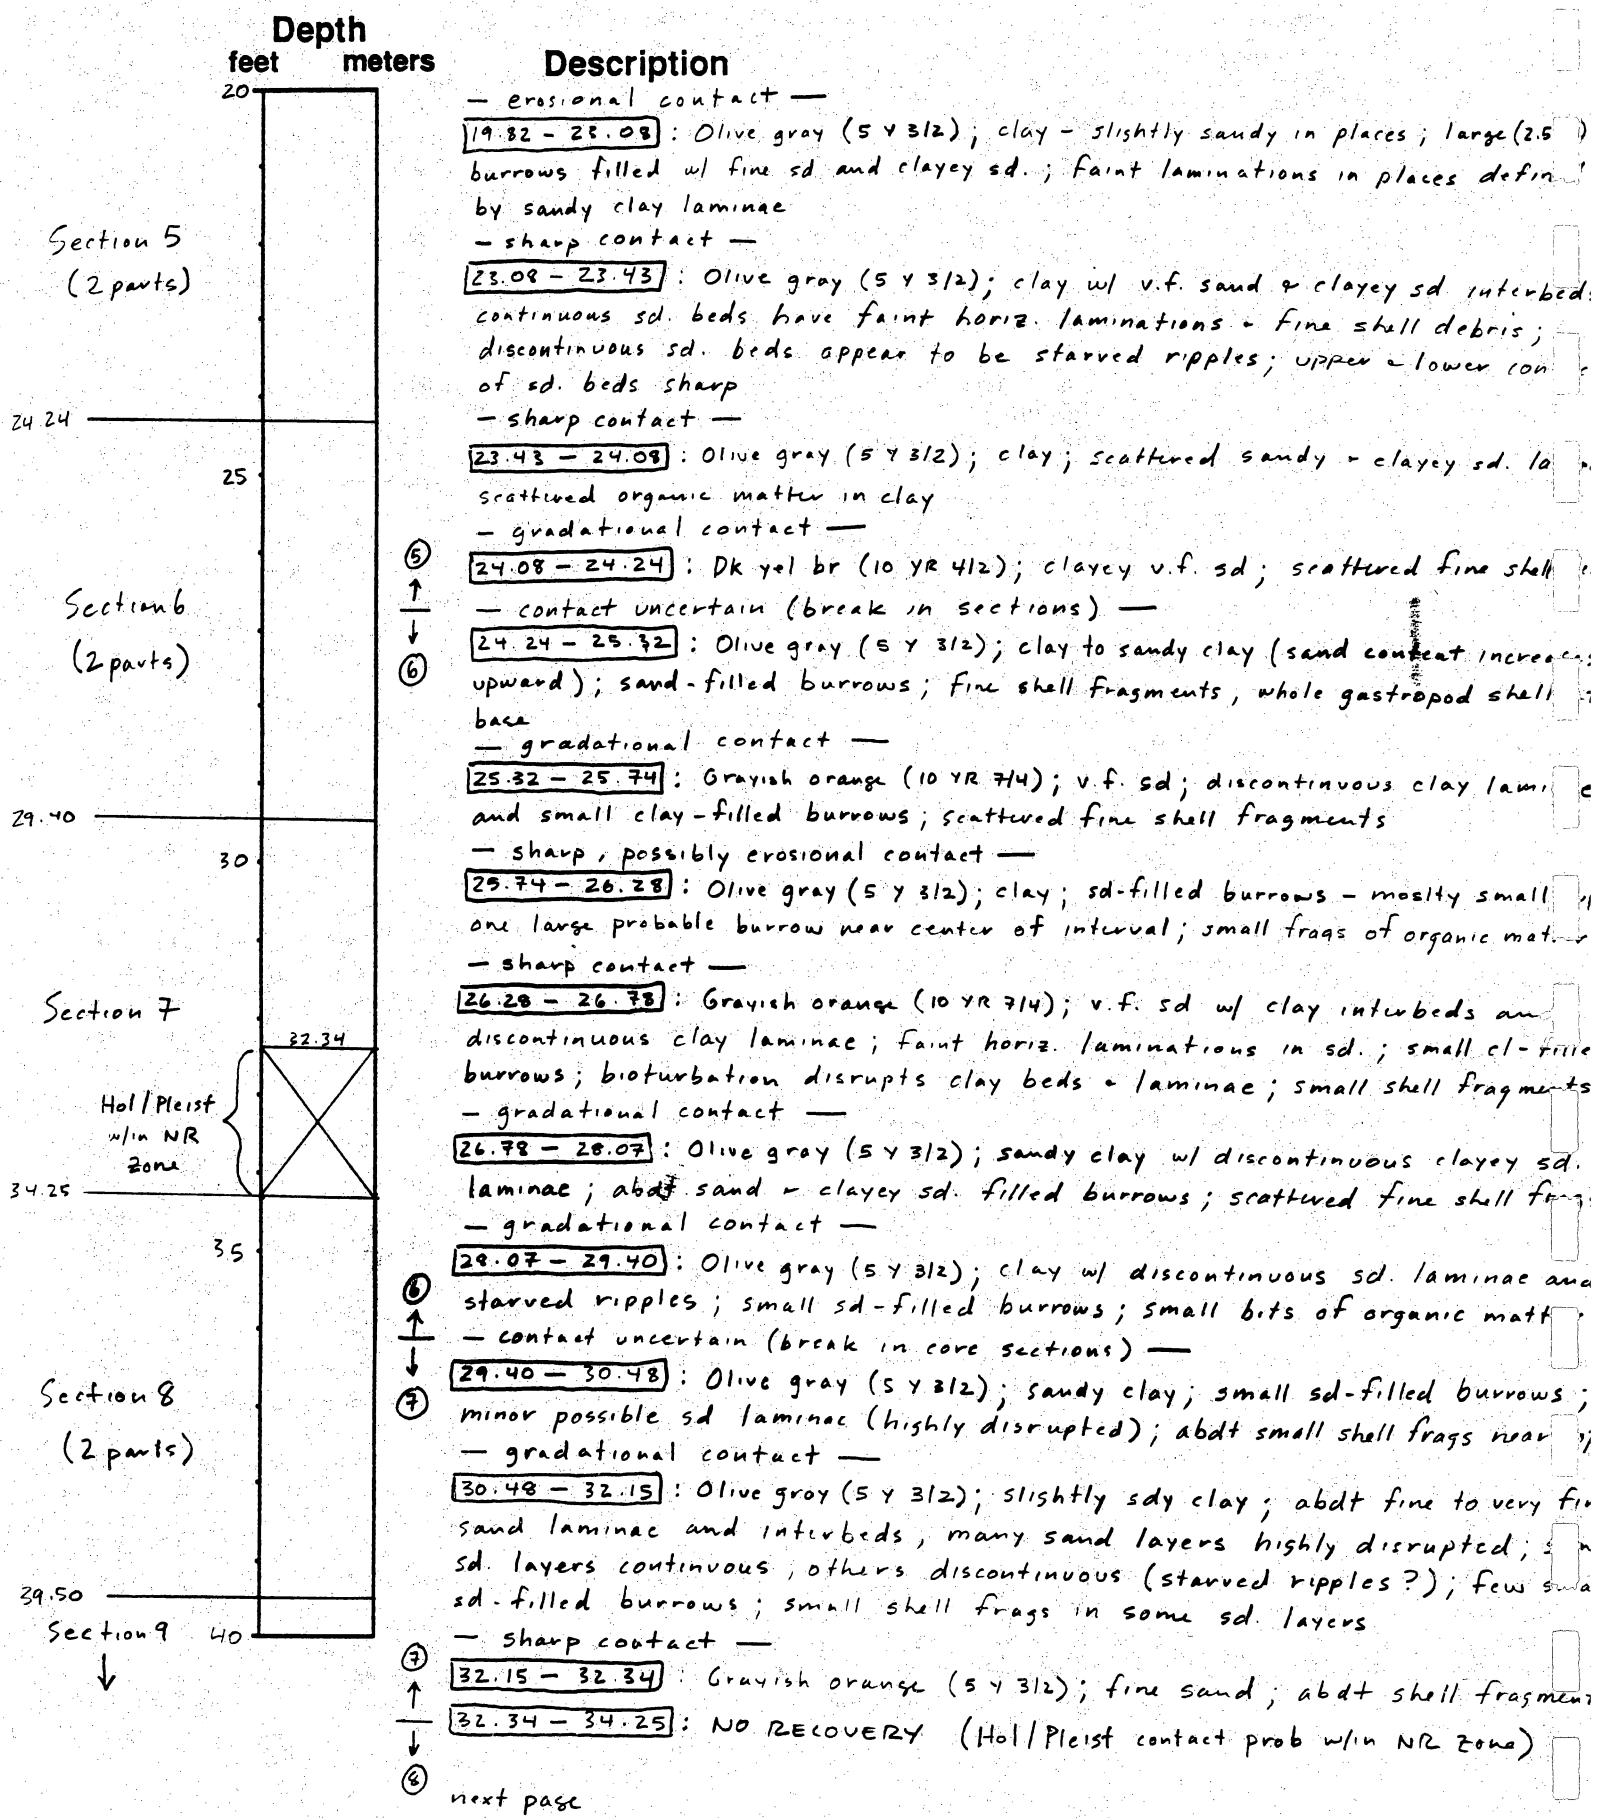 Depth
feet meters Description
20
— erosional contact —
19.82 – 23.08 : Olive gray (5 Y 3/2); clay – slightly sandy in places; large (2.5 )
burrows filled w/ fine sd and clayey sd.; faint laminations in places defin
by sandy clay laminae
— sharp contact —
Section 5
(2 parts)
23.08 – 23.43 : Olive gray (5 Y 3/2); clay w/ v.f. sand & clayey sd interbed
continuous sd. beds have faint horiz. laminations & fine shell debris;
discontinuous sd. beds appear to be starved ripples; upper & lower con
of sd. beds sharp
24.24
— sharp contact —
23.43 – 24.08 : Olive gray (5 Y 3/2); clay; scattered sandy & clayey sd. la
25
scattered organic matter in clay
— gradational contact —
5
24.08 – 24.24 : Dk yel br (10 YR 4/2); clayey v.f. sd; scattered fine shell
Section 6
(2 parts)
↑
— contact uncertain (break in sections) —
↓
24.24 – 25.32 : Olive gray (5 Y 3/2); clay to sandy clay (sand content increa
6
upward); sand-filled burrows; fine shell fragments, whole gastropod shell
base
— gradational contact —
25.32 – 25.74 : Grayish orange (10 YR 7/4); v.f. sd; discontinuous clay lami
29.40
and small clay-filled burrows; scattered fine shell fragments
— sharp, possibly erosional contact —
30
25.74 – 26.28 : Olive gray (5 Y 3/2); clay; sd-filled burrows – moslty small
one large probable burrow near center of interval; small frags of organic mat
— sharp contact —
Section 7
26.28 – 26.78 : Grayish orange (10 YR 7/4); v.f. sd w/ clay interbeds an
32.34
discontinuous clay laminae; faint horiz. laminations in sd.; small cl-fille
burrows; bioturbation disrupts clay beds & laminae; small shell fragments
Hol/Pleist
w/in NR
Zone
— gradational contact —
26.78 – 28.07 : Olive gray (5 Y 3/2); sandy clay w/ discontinuous clayey sd.
34.25
laminae; abdt sand & clayey sd. filled burrows; scattered fine shell frag
— gradational contact —
35
28.07 – 29.40 : Olive gray (5 Y 3/2); clay w/ discontinuous sd. laminae and
6
starved ripples; small sd-filled burrows; small bits of organic matt
↑
— contact uncertain (break in core sections) —
↓
29.40 – 30.48 : Olive gray (5 Y 3/2); sandy clay; small sd-filled burrows;
Section 8
(2 parts)
7
minor possible sd laminae (highly disrupted); abdt small shell frags near
— gradational contact —
30.48 – 32.15 : Olive gray (5 Y 3/2); slightly sdy clay; abdt fine to very fi
sand laminae and interbeds, many sand layers highly disrupted;
sd. layers continuous, others discontinuous (starved ripples?); few
39.50
sd-filled burrows; small shell frags in some sd. layers
Section 9 40
↓
— sharp contact —
7
32.15 – 32.34 : Grayish orange (5 Y 3/2); fine sand; abdt shell fragmen
↑
32.34 – 34.25 : NO RECOVERY (Hol/Pleist contact prob w/in NR Zone)
↓
8
next page